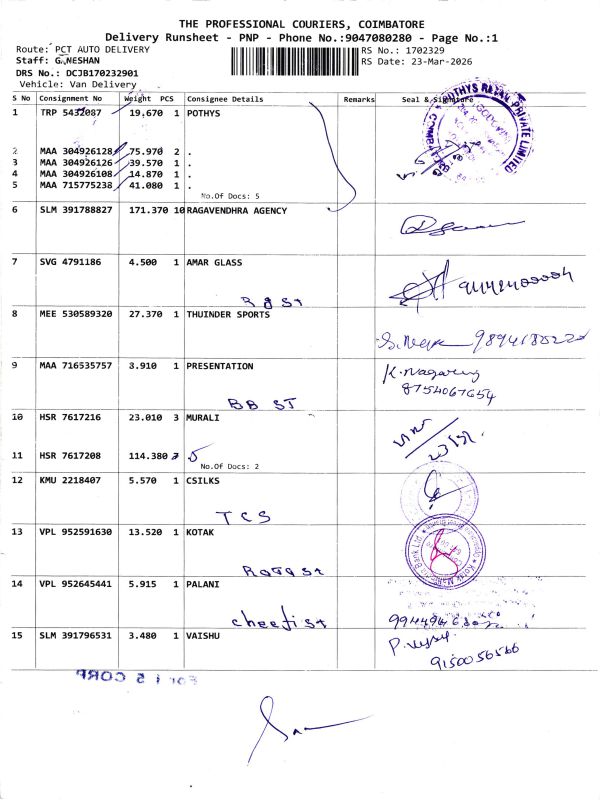 THE PROFESSIONAL COURIERS, COIMBATORE
Delivery Runsheet - PNP - Phone No.:9047080280 - Page No.:1
Route: PCT AUTO DELIVERY
RS No.: 1702329
Staff: GANESHAN
RS Date: 23-Mar-2026
DRS No.: DCJB170232901
Vehicle: Van Delivery
S No Consignment No Weight PCS Consignee Details Remarks Seal & Signature
1 TRP 5432087 19.670 1 POTHYS
POTHYS PRIVATE LIMITED
2 MAA 304926128 75.970 2 .
3 MAA 304926126 39.570 1 .
4 MAA 304926108 14.870 1 .
5 MAA 715775238 41.080 1 .
No.Of Docs: 5
6 SLM 391788827 171.370 10 RAGAVENDHRA AGENCY
7 SVG 4791186 4.500 1 AMAR GLASS
R G St
8 MEE 530589320 27.370 1 THUINDER SPORTS
9 MAA 716535757 3.910 1 PRESENTATION
K. Nagaraj
8754067654
BB ST
10 HSR 7617216 23.010 3 MURALI
11 HSR 7617208 114.380 5
No.Of Docs: 2
12 KMU 2218407 5.570 1 CSILKS
TCS
13 VPL 952591630 13.520 1 KOTAK
Kotak Mahindra Bank Ltd
14 VPL 952645441 5.915 1 PALANI
15 SLM 391796531 3.480 1 VAISHU
9150056566
For I S CORP